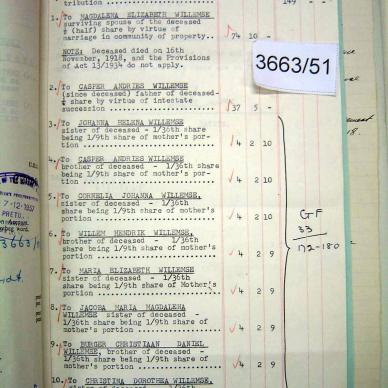 tribution ................ 149 - -
1. To MAGDALENA ELIZABETH WILLEMSE
surviving spouse of the deceased
½ (half) share by virtue of
marriage in community of property.. 74 10 -
NOTE: Deceased died on 16th
November, 1918, and the Provisions
of Act 13/1934 do not apply.
3663/51
2. To CASPER ANDRIES WILLEMSE
(since deceased) father of deceased-
¼ share by virtue of intestate
succession ............... 37 5 -
3. To JOHANNA HELENA WILLEMSE
sister of deceased - 1/36th share
being 1/9th share of mother's por-
tion ................ 4 2 10
4. To CASPER ANDRIES WILLEMSE
brother of deceased - 1/36th share
being 1/9th share of mother's por-
tion ................ 4 2 10
5. To CORNELIA JOHANNA WILLEMSE,
sister of deceased - 1/36th
share being 1/9th share of mother's
portion ................ 4 2 10
6. To WILLEM HENDRIK WILLEMSE,
brother of deceased - 1/36th
share being 1/9th share of mother's
portion ................ 4 2 9
7. To MARIA ELIZABETH WILLEMSE
sister of deceased - 1/36th
share being 1/9th share of Mother's
portion ................ 4 2 9
8. To JACOBA MARIA MAGDALENA
WILLEMSE sister of deceased -
1/36th share being 1/9th share of
mother's portion ............ 4 2 9
9. To BURGER CHRISTIAAN DANIEL
WILLEMSE, brother of deceased -
1/36th share being 1/9th share of
mother's portion ............ 4 2 9
10. To CHRISTINA DOROTHEA WILLEMSE,
GF
33
172-180
7-12-1957
3663/
18.